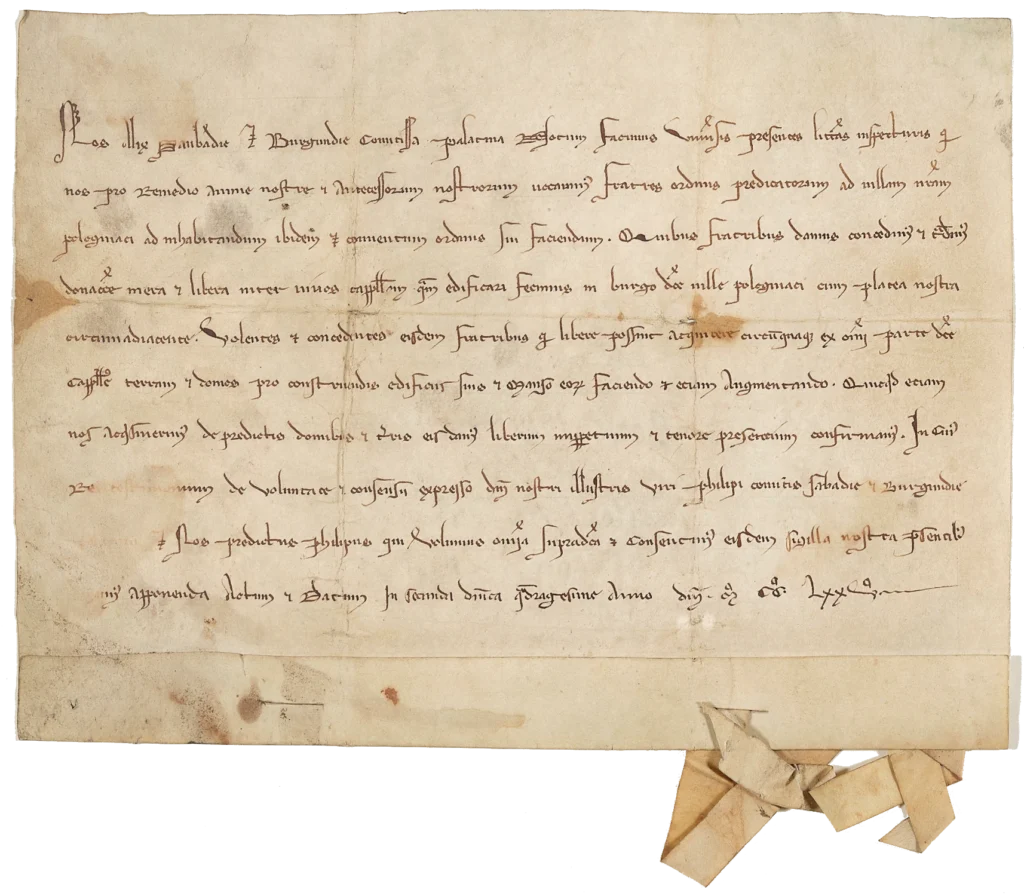 Nos Alix Sabaudie et Burgundie Comitissa palatina Notum facimus Univsis presentes litt'as inspecturis q
nos pro Remedio anime nostre et Antecessorum nostrorum vocamus fratres ordinis predicatorum ad villam nram
poligniaci ad inhabitandum ibidem et conventum ordinis sui faciendum. Quibus fratribus damus concedim' et
donacoe mera et libera inter vivos cappllam qm edificari fecimus in burgo dce ville poligniaci cum platea nostra
circumadiacente. Volentes et concedentes eisdem fratribus q libere possint acquirere circuquaq ex omi parte dce
Capplle terram et domos pro construendis edificiis suis et Manso eor faciendo et eciam Augmentando. Quicqd eciam
nos acqsiverim' de predictis domibus et t'ris eis dam' liberum imppetuum et tenore presencium confirmam'. In Cui'
Rei testimonium de voluntate et consensu expresso dni nostri illustris viri philipi comitis sabaudie et Burgundie
et Nos predictus philipus qui Volumus omia supradca et Consentim' eisdem Sigilla nostra psentib'
apponenda Actum et Datum In secunda dnica qdragesime Anno dni. mo cco Lxxvo